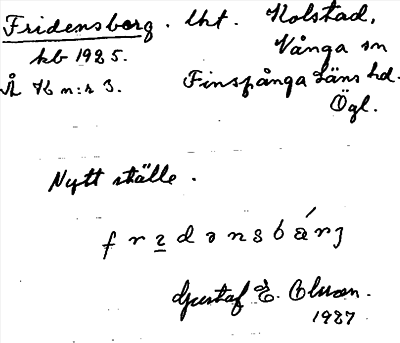 Fridensborg. lht. Kolstad,
Vånga sn
kb 1925.
Å K n:r 3. Finspånga läns hd.
Ögl.
Nytt ställe.
frɪdənsbárj
Gustaf E. Olsson.
1927